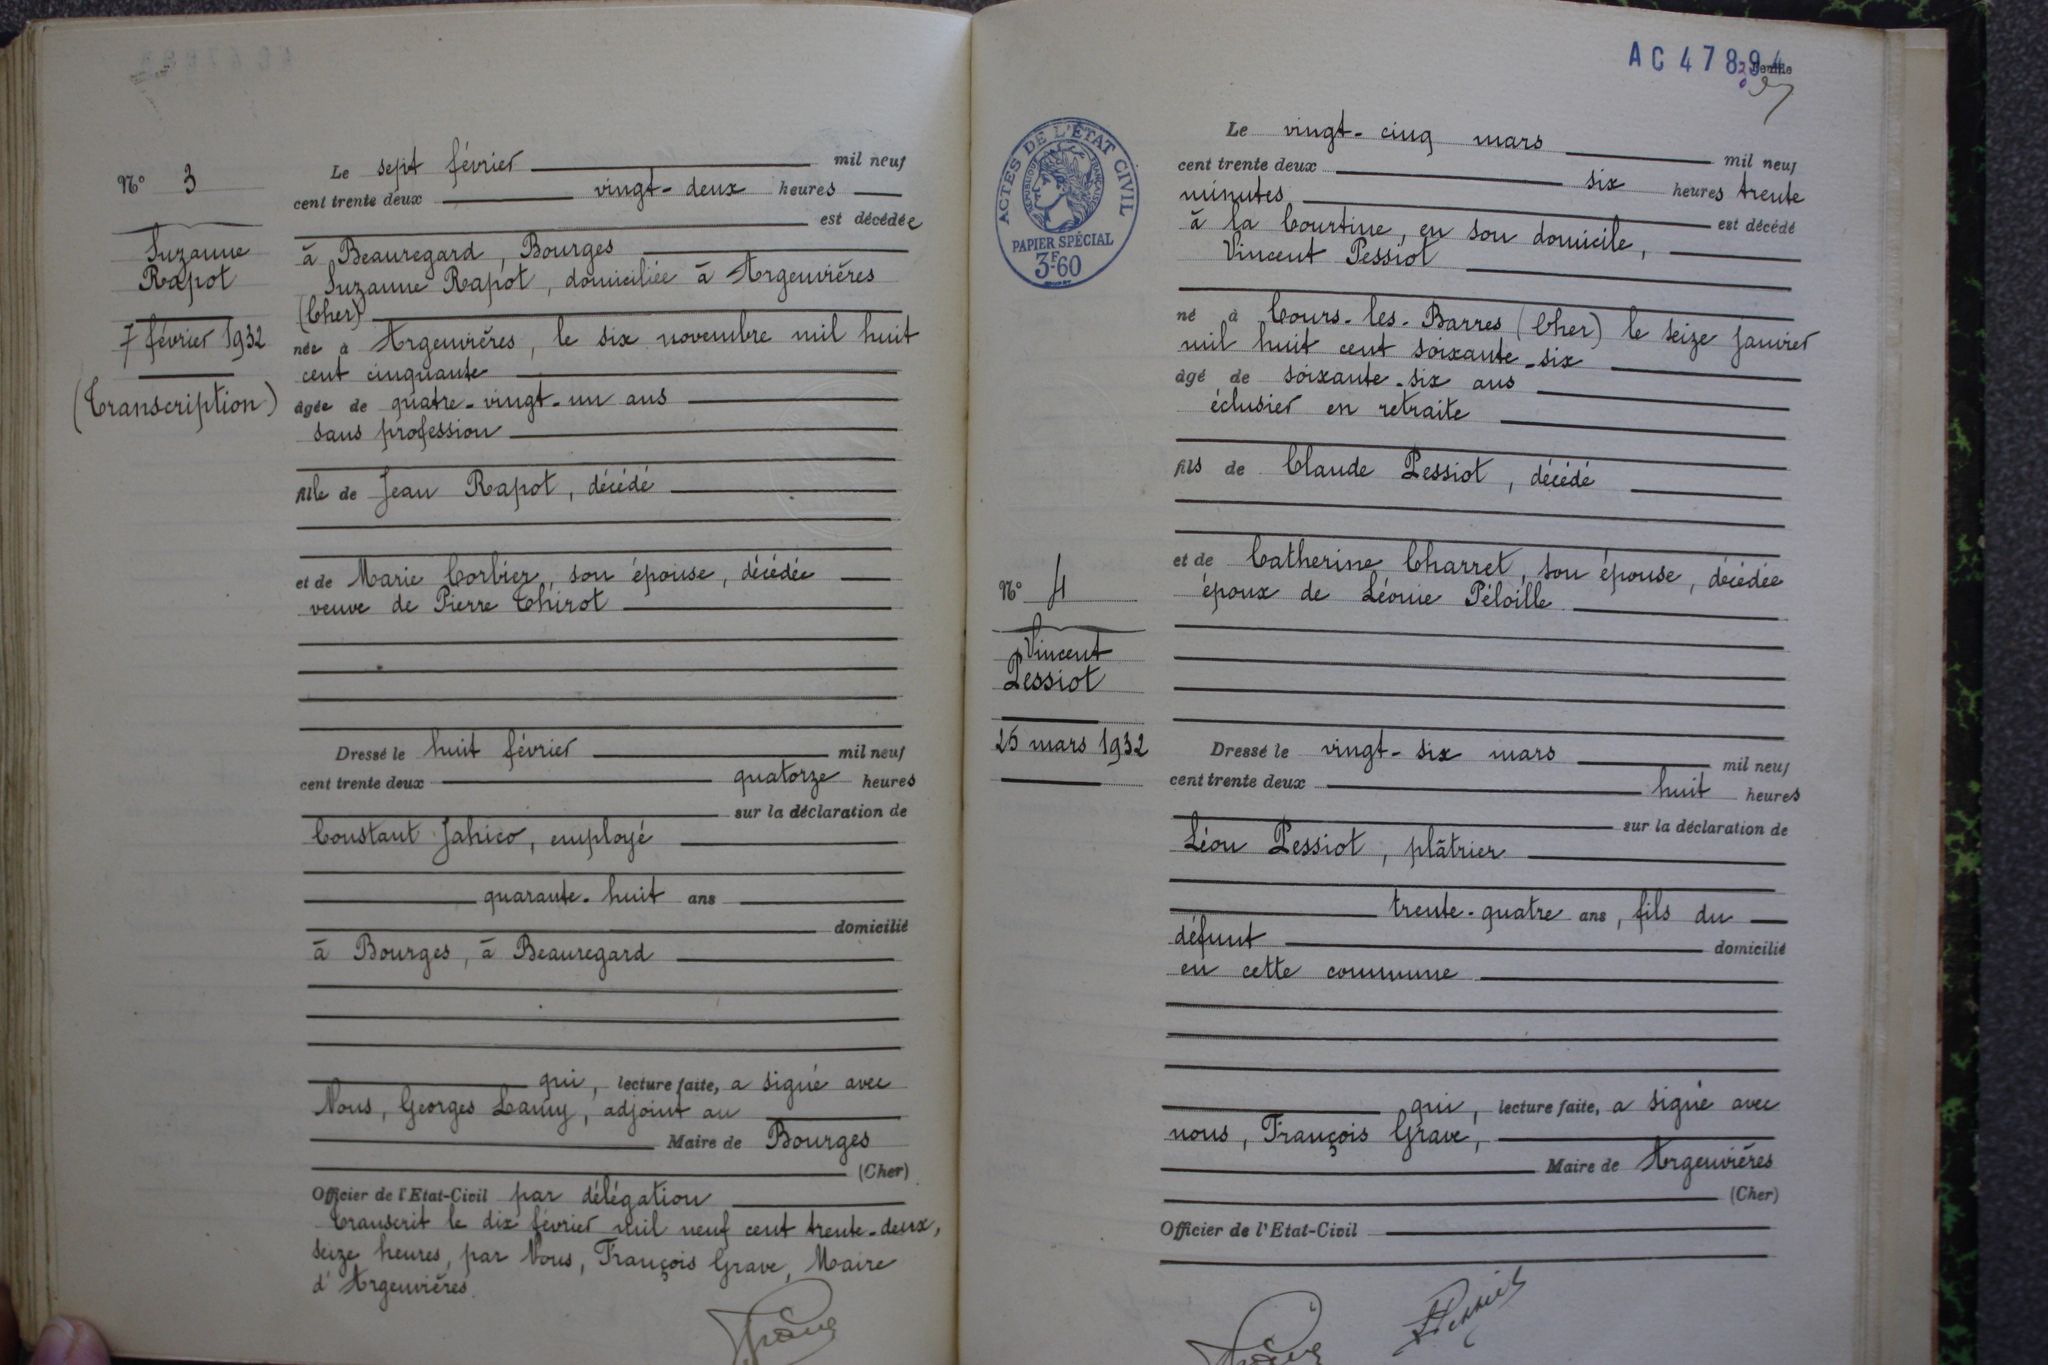 N° 3
Suzanne
Rapot
7 février 1932
(Transcription)
Le sept février mil neuf
cent trente deux vingt-deux heures
est décédée
à Beauregard, Bourges
Suzanne Rapot, domiciliée à Argenvières
(Cher)
née à Argenvières, le six novembre mil huit
cent cinquante
âgée de quatre-vingt-un ans
sans profession
fille de Jean Rapot, décédé
et de Marie Corbier, son épouse, décédée
veuve de Pierre Thirot
Dressé le huit février mil neuf
cent trente deux quatorze heures
sur la déclaration de
Constant Jahico, employé
quarante-huit ans
domicilié
à Bourges, à Beauregard
qui, lecture faite, a signé avec
Nous, Georges Lamy, adjoint au
Maire de Bourges
(Cher)
Officier de l'Etat-Civil par délégation
Transcrit le dix février mil neuf cent trente-deux,
seize heures, par Nous, François Grave, Maire
d'Argenvières
Grave
AC 47894
ACTES DE L'ÉTAT CIVIL
RÉPUBLIQUE FRANÇAISE
PAPIER SPÉCIAL
3F60
N° 4
Vincent
Pessiot
25 mars 1932
Le vingt-cinq mars mil neuf
cent trente deux six heures trente
minutes est décédé
à la Courtine, en son domicile,
Vincent Pessiot
né à Cours-les-Barres (Cher) le seize janvier
mil huit cent soixante-six
âgé de soixante-six ans
éclusier en retraite
fils de Claude Pessiot, décédé
et de Catherine Charret, son épouse, décédée
époux de Léonie Péloille
Dressé le vingt-six mars mil neuf
cent trente deux huit heures
sur la déclaration de
Léon Pessiot, plâtrier
trente-quatre ans, fils du
défunt domicilié
en cette commune
qui, lecture faite, a signé avec
nous, François Grave,
Maire de Argenvières
(Cher)
Officier de l'Etat-Civil
Grave